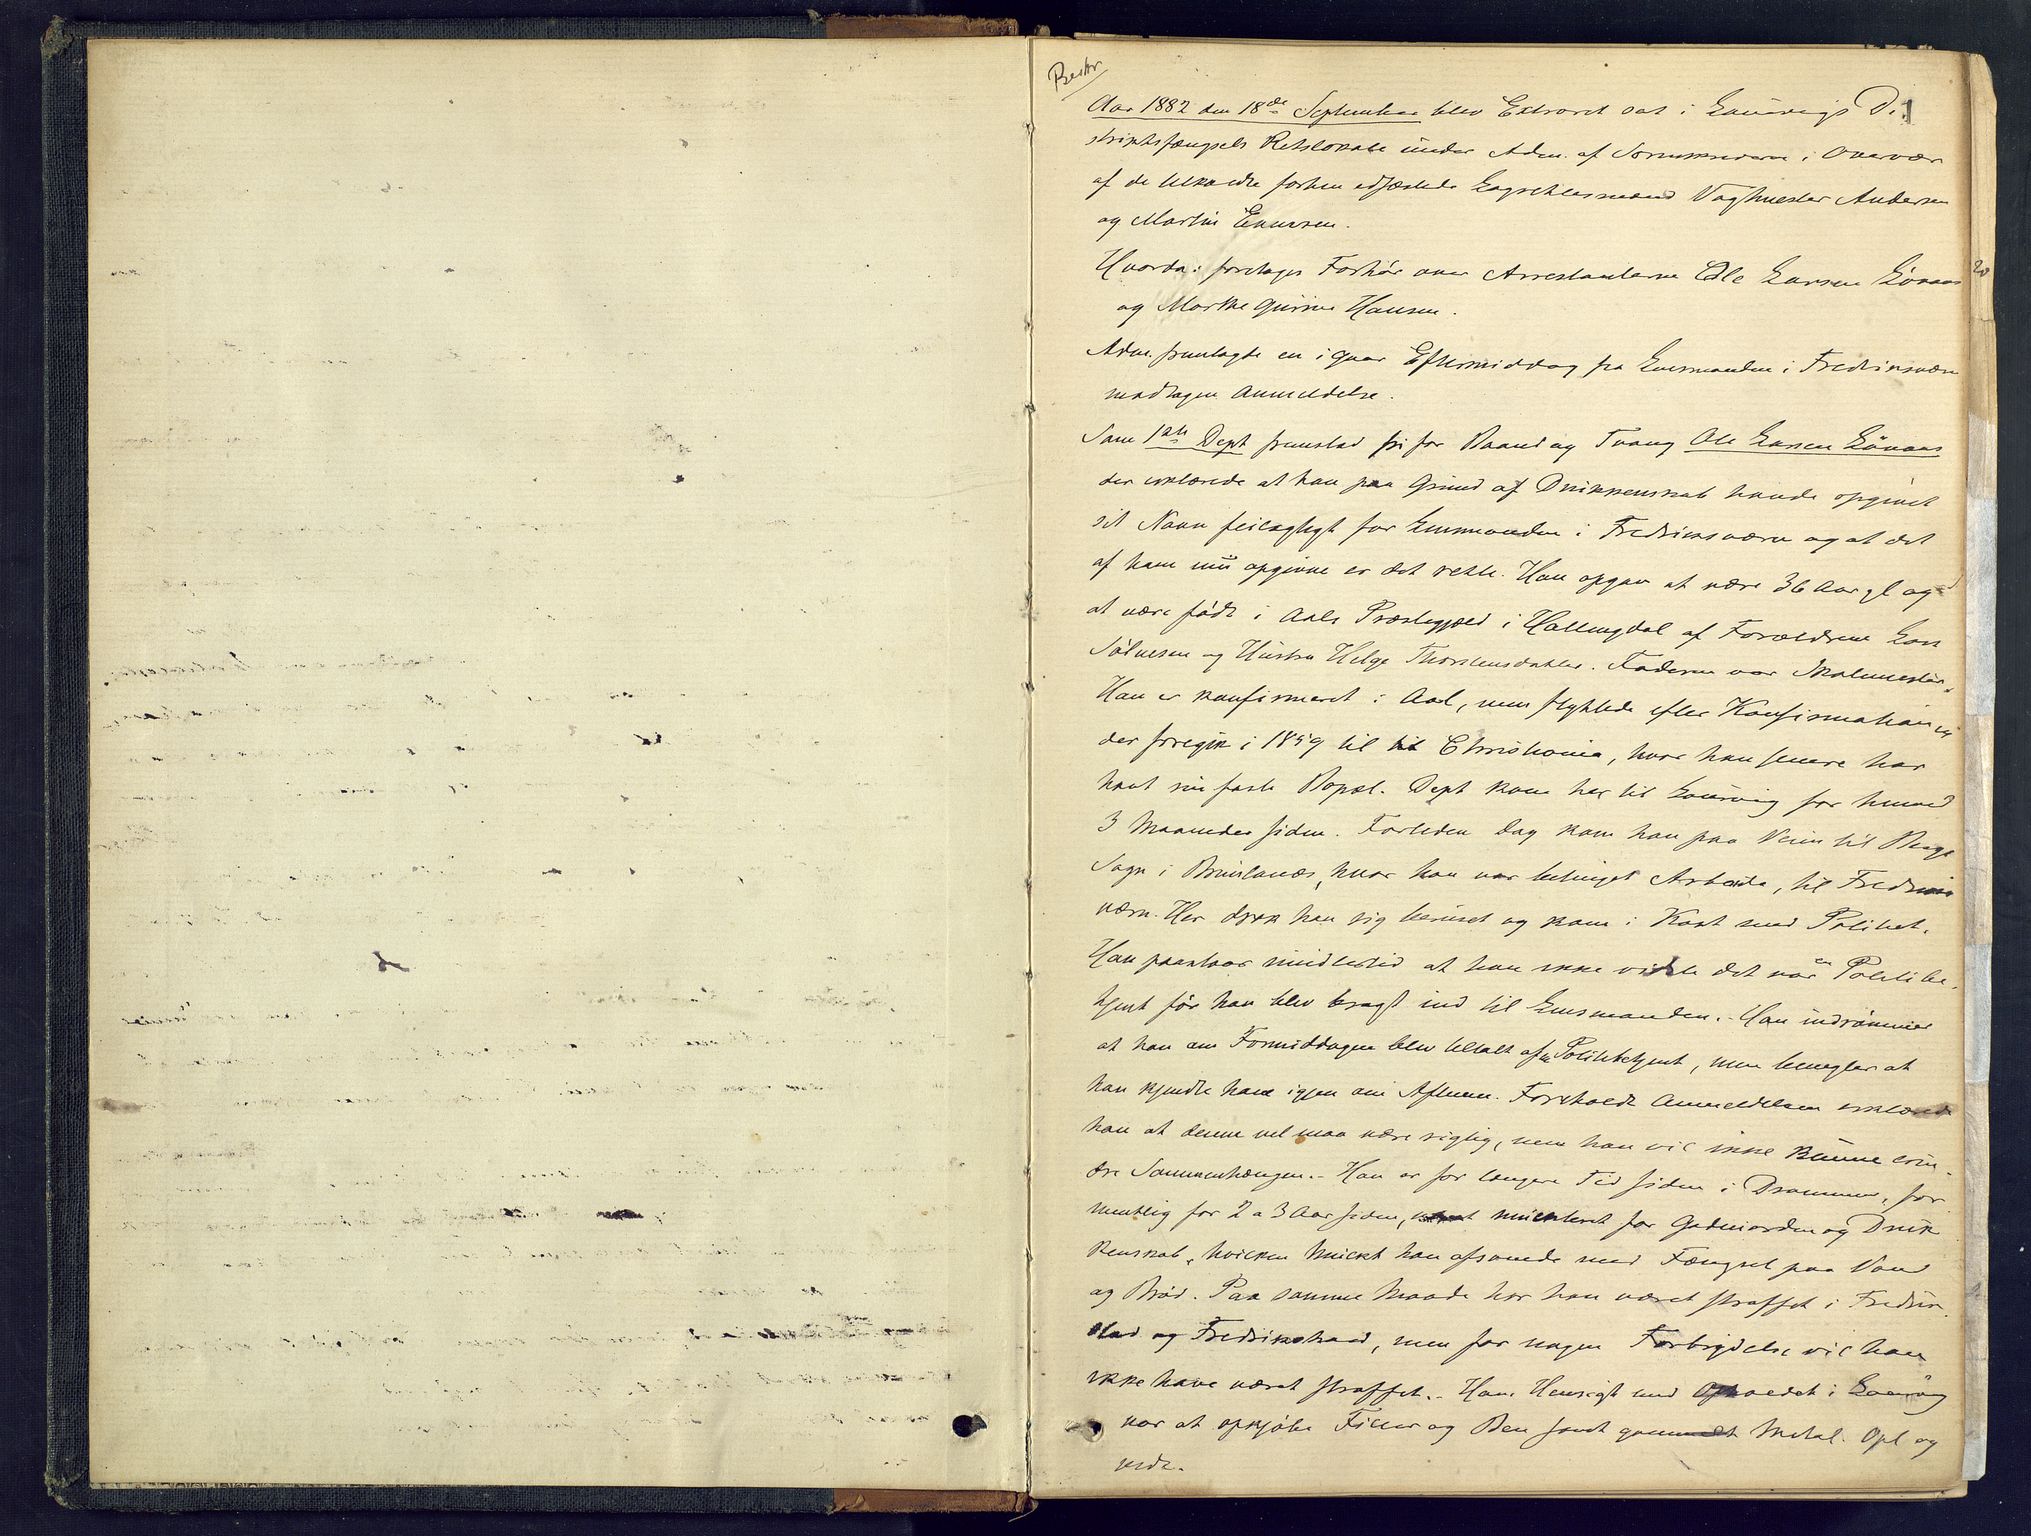 Beskr
Aar 1882 den 18de September blev Extraret sat i Laurvigs Di¬ 1
striktsfængsels Retslokale under Adm. af Sorenskriveren i Overvær
af de tilkaldte forhen edfæstede Lagrettesmænd Vagtmester Andersen
og Martin Evensen.
Hvorda: foretoges Forhør over Arrestanterne Ole Larsen Lövaas
og Marthe Gurine Hansen.
Adm. fremlagde en igaar Eftermiddag fra Lensmanden i Fredriksværn
modtagen Anmeldelse.
Som 1ste Dept fremstod fri for Baand og Tvang Ole Larsen Lövaas
der erklærede at han paa Grund af Drikkenskab havde opgivet
sit Navn feilagtigt for Lensmanden i Fredriksværn og at det
af ham nu opgivne er det rette. Han opgav at være 36 Aar gl og
at være født i Aals Præstegjæld i Hallingdal af Forældrene Lars
Sølvesen og Hustru Helge Thorstensdatter. Faderen var Skolemester.
Han er konfirmeret i Aal, men flyttede efter Konfirmationen
der foregik i 1859 til Christiania, hvor han senere har
havt sin faste Bopæl. Dept kom her til Laurvig for henved
3 Maaneder siden. Forleden Dag kom han paa Veien til Bergs
Sogn i Brunlanæs, hvor han var betinget Arbeide, til Fredriks
værn. Her drak han sig beruset og kom i Kast med Politiet.
Han paastaar imidlertid at han ikke vidste det var en Politibe¬
tjent før han blev bragt ind til Lensmanden. Han indrømmer
at han om Formiddagen blev tiltalt af en Politibetjent, men benegter at
han kjendte ham igjen om Aftenen. Foreholdt Anmeldelsen erklærede
han at denne vel maa være rigtig, men han vil ikke kunne erin¬
dre Sammenhængen. Han er for længere Tid siden i Drammen, for
mentlig for 2 a 3 Aar siden, mulkteret for Gadeuorden og Drik
kenskab, hvilken Mulkt han afsonede med Fængsel paa Vand
og Brød. Paa samme Maade har han været straffet i Fredrik
stad og Fredrikshald, men for nogen Forbrydelse vil han
ikke have været straffet. Hans Hensigt med Opholdet i Laurvig
var at opkjøbe Filler og Ben samt gammelt Metal. Opl og
vedt.